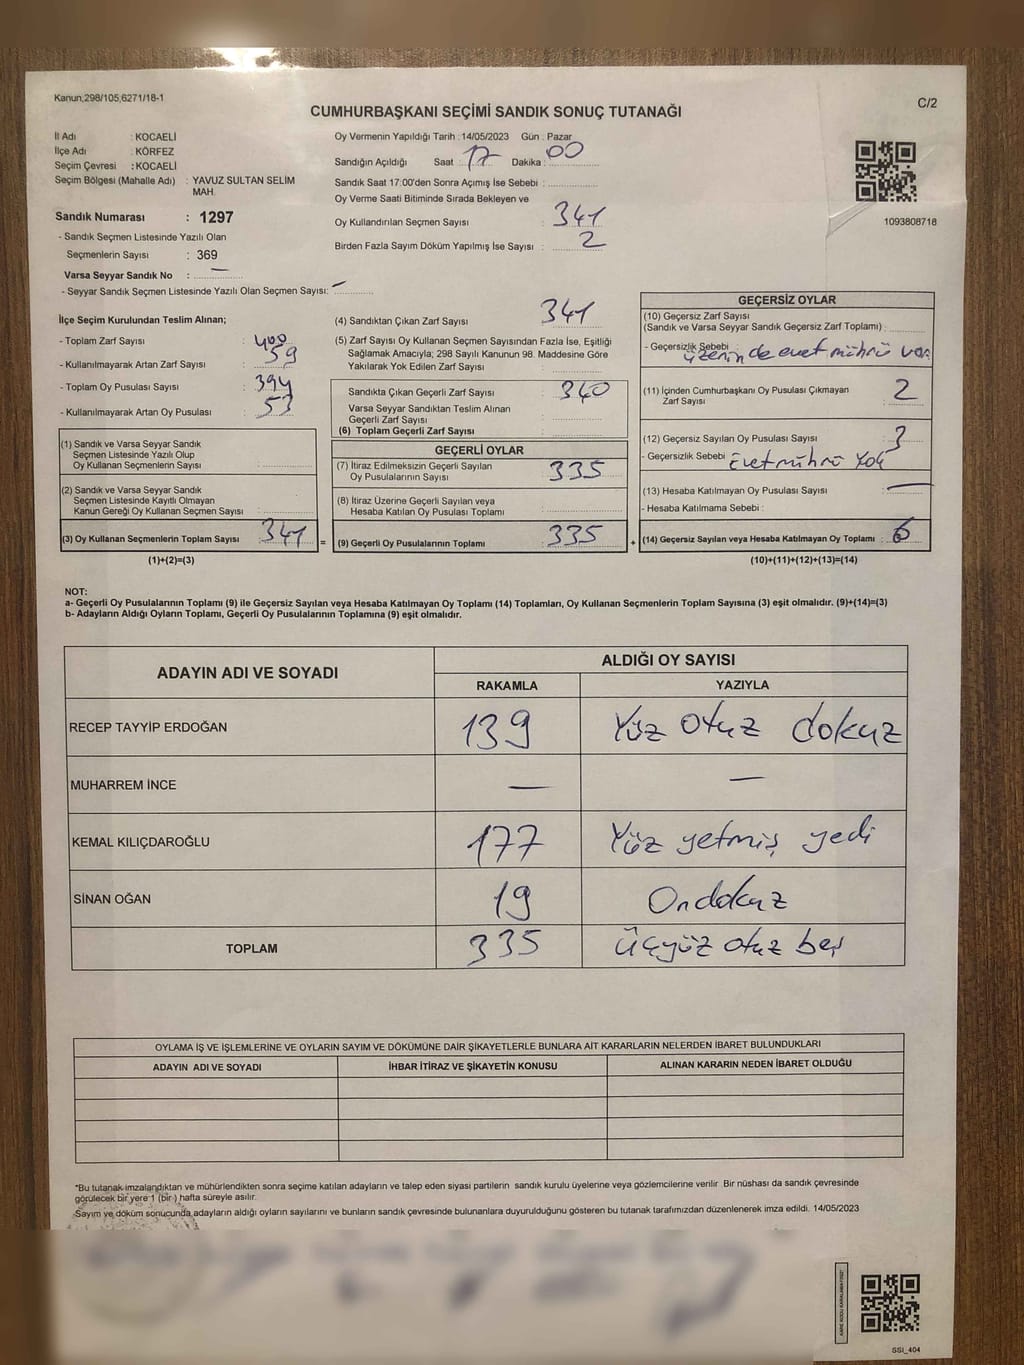 Kanun;298/105,6271/18-1
C/2
CUMHURBAŞKANI SEÇİMİ SANDIK SONUÇ TUTANAĞI
İl Adı : KOCAELİ
İlçe Adı : KÖRFEZ
Seçim Çevresi : KOCAELİ
Seçim Bölgesi (Mahalle Adı) : YAVUZ SULTAN SELİM
MAH.
Sandık Numarası : 1297
- Sandık Seçmen Listesinde Yazılı Olan
Seçmenlerin Sayısı : 369
Varsa Seyyar Sandık No : —
- Seyyar Sandık Seçmen Listesinde Yazılı Olan Seçmen Sayısı: —
Oy Vermenin Yapıldığı Tarih : 14/05/2023 Gün : Pazar
Sandığın Açıldığı Saat : 17 Dakika : 00
Sandık Saat 17:00'den Sonra Açımış İse Sebebi :
Oy Verme Saati Bitiminde Sırada Bekleyen ve
Oy Kullandırılan Seçmen Sayısı : 341
Birden Fazla Sayım Döküm Yapılmış İse Sayısı : 2
1093808718
İlçe Seçim Kurulundan Teslim Alınan;
- Toplam Zarf Sayısı : 400
- Kullanılmayarak Artan Zarf Sayısı : 59
- Toplam Oy Pusulası Sayısı : 394
- Kullanılmayarak Artan Oy Pusulası : 53
(1) Sandık ve Varsa Seyyar Sandık
Seçmen Listesinde Yazılı Olup
Oy Kullanan Seçmenlerin Sayısı :
(2) Sandık ve Varsa Seyyar Sandık
Seçmen Listesinde Kayıtlı Olmayan
Kanun Gereği Oy Kullanan Seçmen Sayısı :
(3) Oy Kullanan Seçmenlerin Toplam Sayısı : 341 =
(1)+(2)=(3)
(4) Sandıktan Çıkan Zarf Sayısı : 341
(5) Zarf Sayısı Oy Kullanan Seçmen Sayısından Fazla İse, Eşitliği
Sağlamak Amacıyla; 298 Sayılı Kanunun 98. Maddesine Göre
Yakılarak Yok Edilen Zarf Sayısı :
Sandıkta Çıkan Geçerli Zarf Sayısı : 340
Varsa Seyyar Sandıktan Teslim Alınan
Geçerli Zarf Sayısı :
(6) Toplam Geçerli Zarf Sayısı :
GEÇERLİ OYLAR
(7) İtiraz Edilmeksizin Geçerli Sayılan
Oy Pusulalarının Sayısı : 335
(8) İtiraz Üzerine Geçerli Sayılan veya
Hesaba Katılan Oy Pusulası Toplamı :
(9) Geçerli Oy Pusulalarının Toplamı : 335 +
GEÇERSİZ OYLAR
(10) Geçersiz Zarf Sayısı
(Sandık ve Varsa Seyyar Sandık Geçersiz Zarf Toplamı) :
- Geçersizlik Sebebi : üzerinde evet mührü var
(11) İçinden Cumhurbaşkanı Oy Pusulası Çıkmayan
Zarf Sayısı : 2
(12) Geçersiz Sayılan Oy Pusulası Sayısı : 3
- Geçersizlik Sebebi : Evet mührü Yok
(13) Hesaba Katılmayan Oy Pusulası Sayısı : —
- Hesaba Katılmama Sebebi :
(14) Geçersiz Sayılan veya Hesaba Katılmayan Oy Toplamı : 6
(10)+(11)+(12)+(13)=(14)
NOT:
a- Geçerli Oy Pusulalarının Toplamı (9) ile Geçersiz Sayılan veya Hesaba Katılmayan Oy Toplamı (14) Toplamları, Oy Kullanan Seçmenlerin Toplam Sayısına (3) eşit olmalıdır. (9)+(14)=(3)
b- Adayların Aldığı Oyların Toplamı, Geçerli Oy Pusulalarının Toplamına (9) eşit olmalıdır.
ADAYIN ADI VE SOYADI
ALDIĞI OY SAYISI
RAKAMLA YAZIYLA
RECEP TAYYİP ERDOĞAN 139 Yüz otuz dokuz
MUHARREM İNCE — —
KEMAL KILIÇDAROĞLU 177 Yüz yetmiş yedi
SİNAN OĞAN 19 Ondokuz
TOPLAM 335 üçyüz otuz beş
OYLAMA İŞ VE İŞLEMLERİNE VE OYLARIN SAYIM VE DÖKÜMÜNE DAİR ŞİKAYETLERLE BUNLARA AİT KARARLARIN NELERDEN İBARET BULUNDUKLARI
ADAYIN ADI VE SOYADI İHBAR İTİRAZ VE ŞİKAYETİN KONUSU ALINAN KARARIN NEDEN İBARET OLDUĞU
*Bu tutanak imzalandıktan ve mühürlendikten sonra seçime katılan adayların ve talep eden siyasi partilerin sandık kurulu üyelerine veya gözlemcilerine verilir Bir nüshası da sandık çevresinde
görülecek bir yere 1 (bir ) hafta süreyle asılır.
Sayım ve döküm sonucunda adayların aldığı oyların sayılarını ve bunların sandık çevresinde bulunanlara duyurulduğunu gösteren bu tutanak tarafımızdan düzenlenerek imza edildi. 14/05/2023
SSI_404